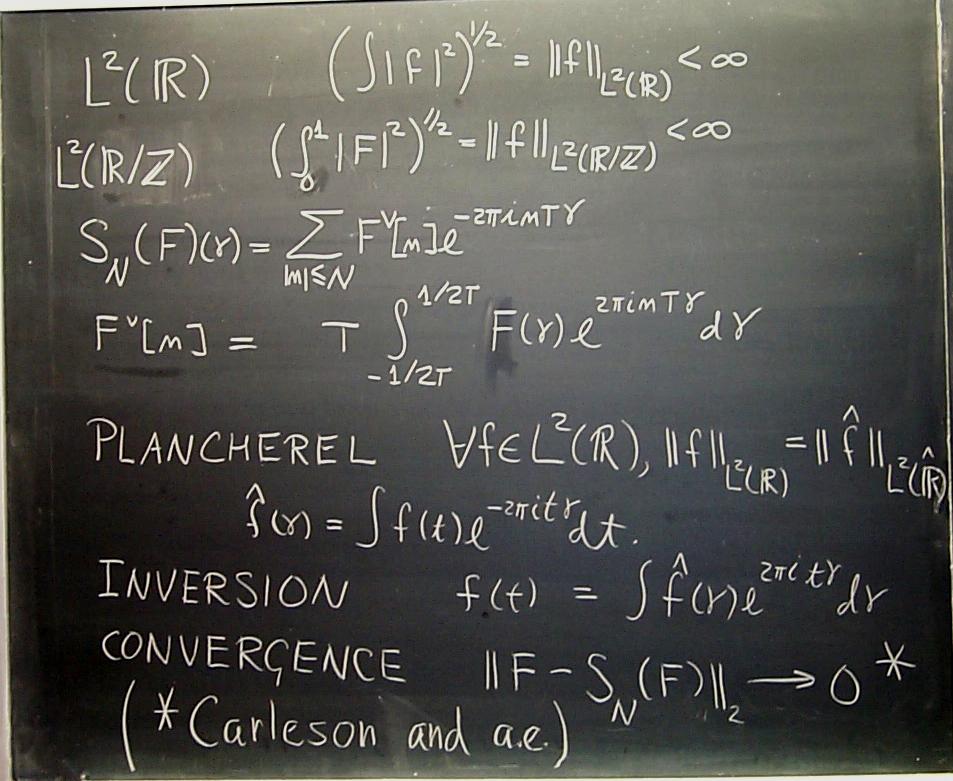 L²(ℝ) (∫|f|²)^{1/2} = ‖f‖_{L²(ℝ)} < ∞
L²(ℝ/ℤ) (∫₀¹ |F|²)^{1/2} = ‖f‖_{L²(ℝ/ℤ)} < ∞
S_N(F)(γ) = ∑_{|n|≤N} F^∨[n] e^{-2πinTγ}
F^∨[n] = T ∫_{-1/2T}^{1/2T} F(γ) e^{2πinTγ} dγ
PLANCHEREL ∀f∈L²(ℝ), ‖f‖_{L²(ℝ)} = ‖f̂‖_{L²(ℝ̂)}
f̂(γ) = ∫ f(t) e^{-2πitγ} dt.
INVERSION f(t) = ∫ f̂(γ) e^{2πitγ} dγ
CONVERGENCE ‖F - S_N(F)‖₂ → 0 *
(* Carleson and a.e.)